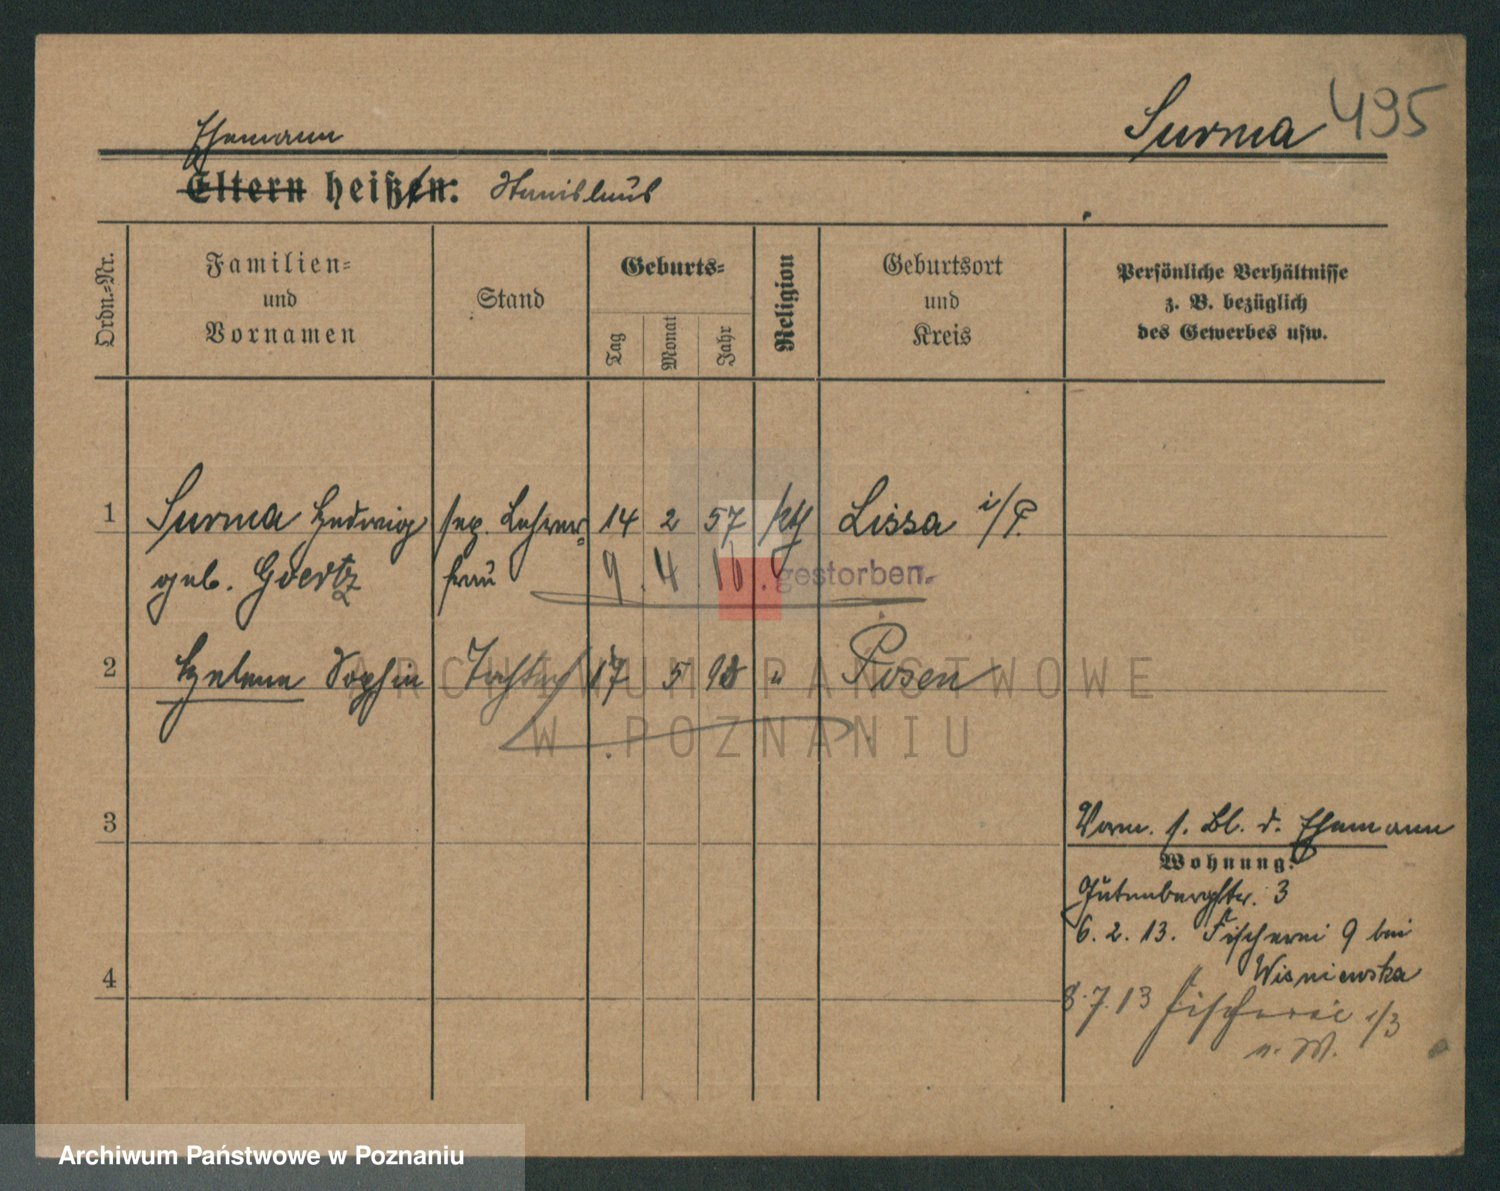 Surma 495
Ehemann
Eltern heißen: Stanislaus
Ordn.-Nr.
Familien-
und
Vornamen
Stand
Geburts-
Tag
Monat
Jahr
Religion
Geburtsort
und
Kreis
Persönliche Verhältnisse
z. B. bezüglich
des Gewerbes usw.
1 Surma Hedwig sep. Lehrer- 14 2 57 kth Lissa i/P.
geb. Goertz frau 9. 4. gestorben.
2 Helene Sophie Tochter 17 5 98 " Posen
ARCHIWUM PAŃSTWOWE
W POZNANIU
3
Vorm. s. Bl. d. Ehemann
Wohnung:
Gutenbergstr. 3
6. 2. 13. Fischerei 9 bei
Wisniewska
4
8.7.13 Fischerei 1/3
n. W.
Archiwum Państwowe w Poznaniu